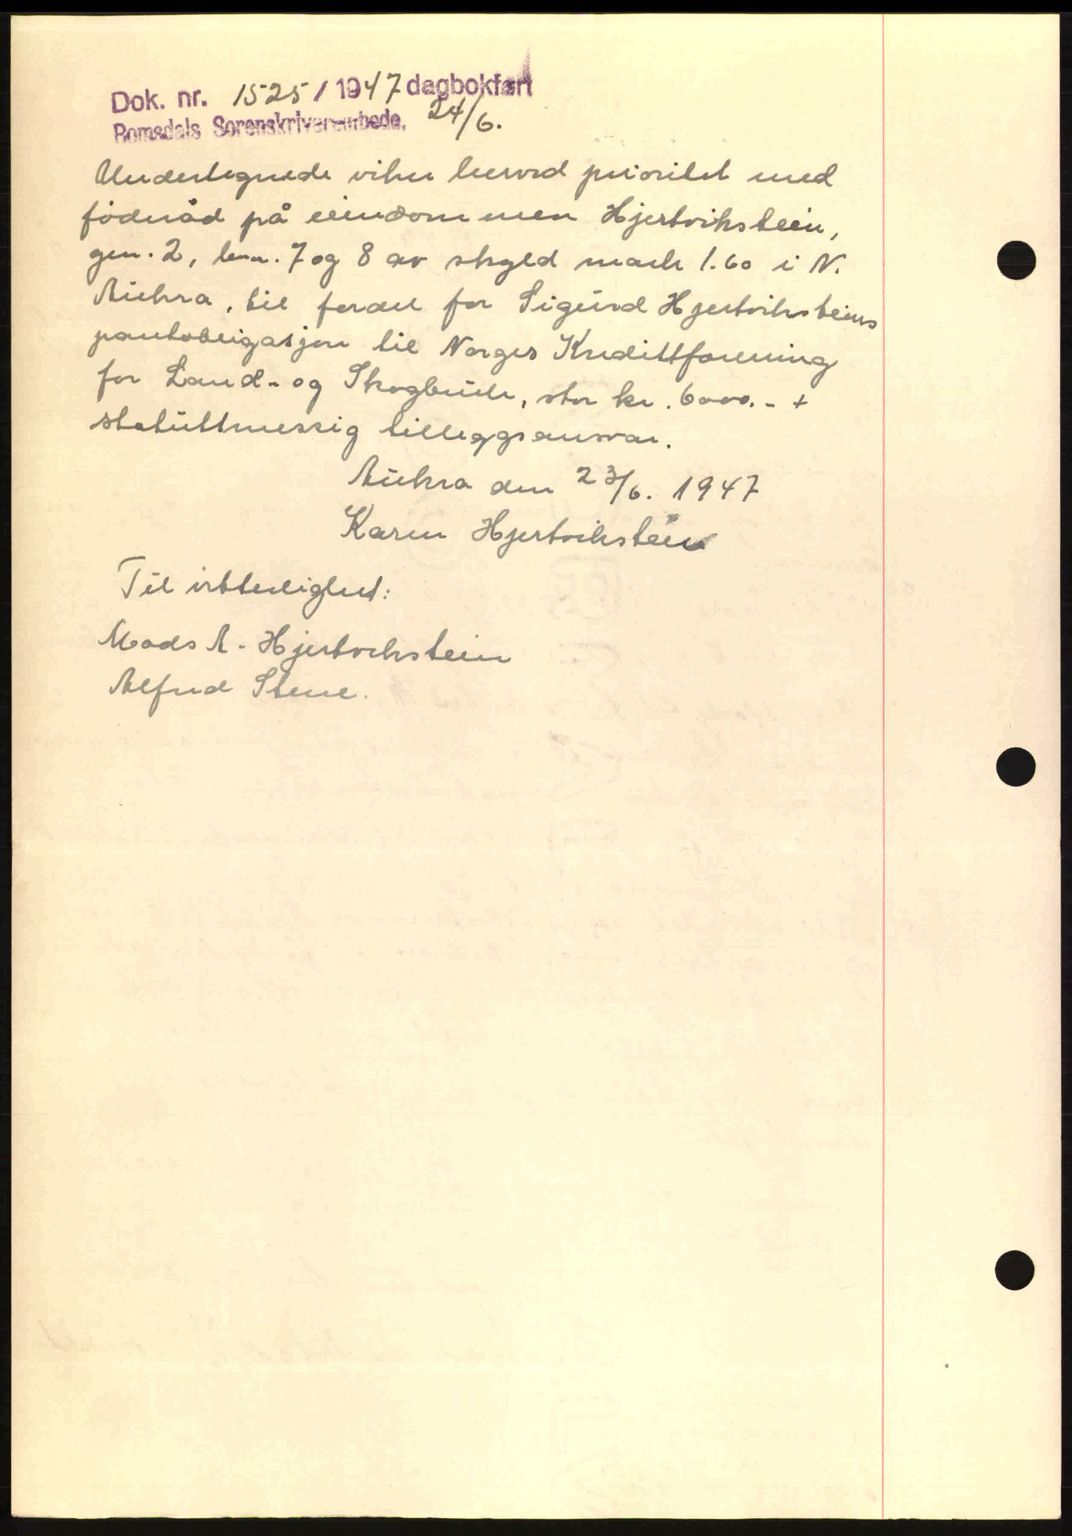 Dok. nr. 1525 / 1947 dagbokført
Romsdals Sorenskriverembede. 24/6.
Undertegnede viker herved prioritet med
föderåd på eiendommen Hjertvikstein,
gnr. 2, bnr. 7 og 8 av skyld mark 1.60 i N.
Aukra, til fordel for Sigurd Hjertviksteins
pantobligasjon til Norges Kredittforening
for Land- og Skogbruk, stor kr. 6000.- +
statuttmessig tilleggsansvar.
Aukra den 23/6. 1947
Karen Hjertvikstein
Til vitterlighet:
Mads A. Hjertvikstein
Alfred Stene.